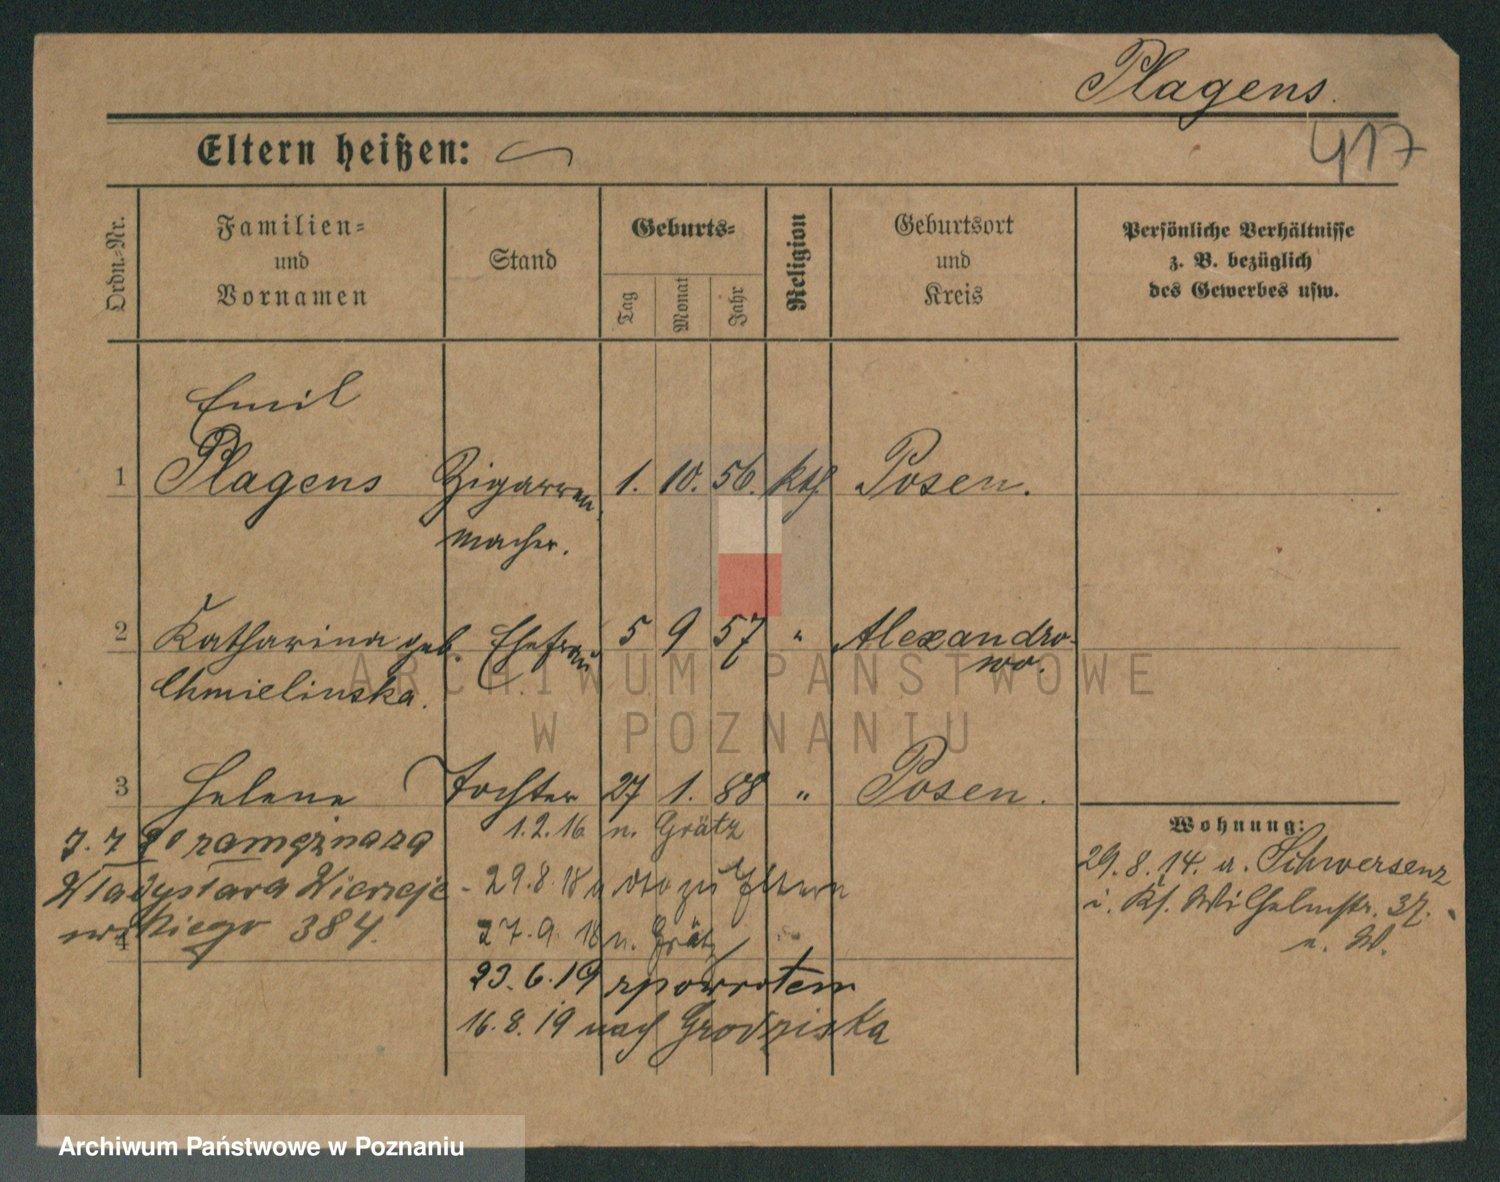 Plagens.
417
Eltern heißen:
Ordn.-Nr.
Familien-
und
Vornamen
Stand
Geburts-
Tag
Monat
Jahr
Religion
Geburtsort
und
Kreis
Persönliche Verhältnisse
z. B. bezüglich
des Gewerbes usw.
Emil
1 Plagens Zigarren 1. 10. 56. kth Posen.
macher.
2 Katharina geb. Ehefrau 5 9 57 " Alexandro-
wo.
Chmielinska.
3 Helene Tochter 27 1. 88 " Posen.
1.2.16 n. Grätz
29.8.18 zu Eltern
4 27.9.18 n. Grätz
23.6.19 zpowrotem
16.8.19 nach Grodziska
7.7 20 zamężna za
Władysława Wierzeje
wskiego 384.
Wohnung:
29.8.14. a. Schwersenz
i. Kf. Wilhelmstr. 37.
u. W.
ARCHIWUM PAŃSTWOWE
W POZNANIU
Archiwum Państwowe w Poznaniu